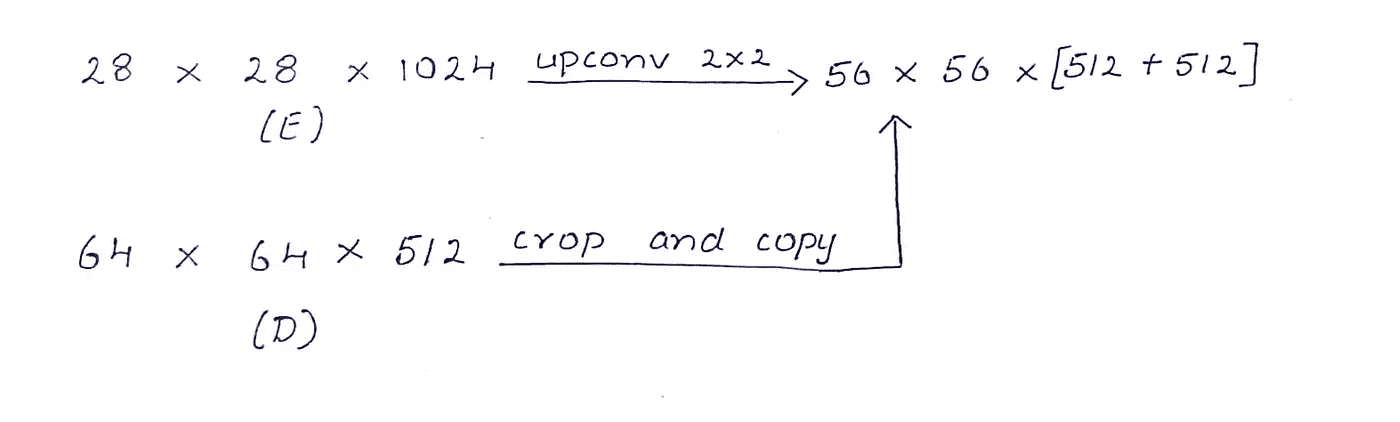 28 × 28 × 1024 upconv 2×2 56 × 56 × [512 + 512]
(E)
64 × 64 × 512 crop and copy
(D)